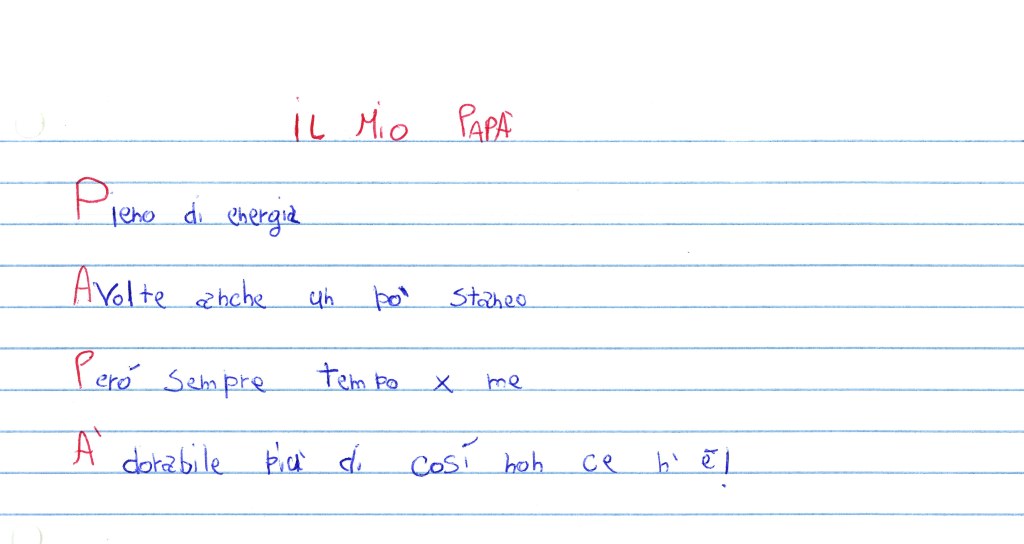 IL MIO PAPÀ
Pieno di energia
A volte anche un po' staneo
Però sempre tempo x me
A' dorabile più di così non ce n' è!